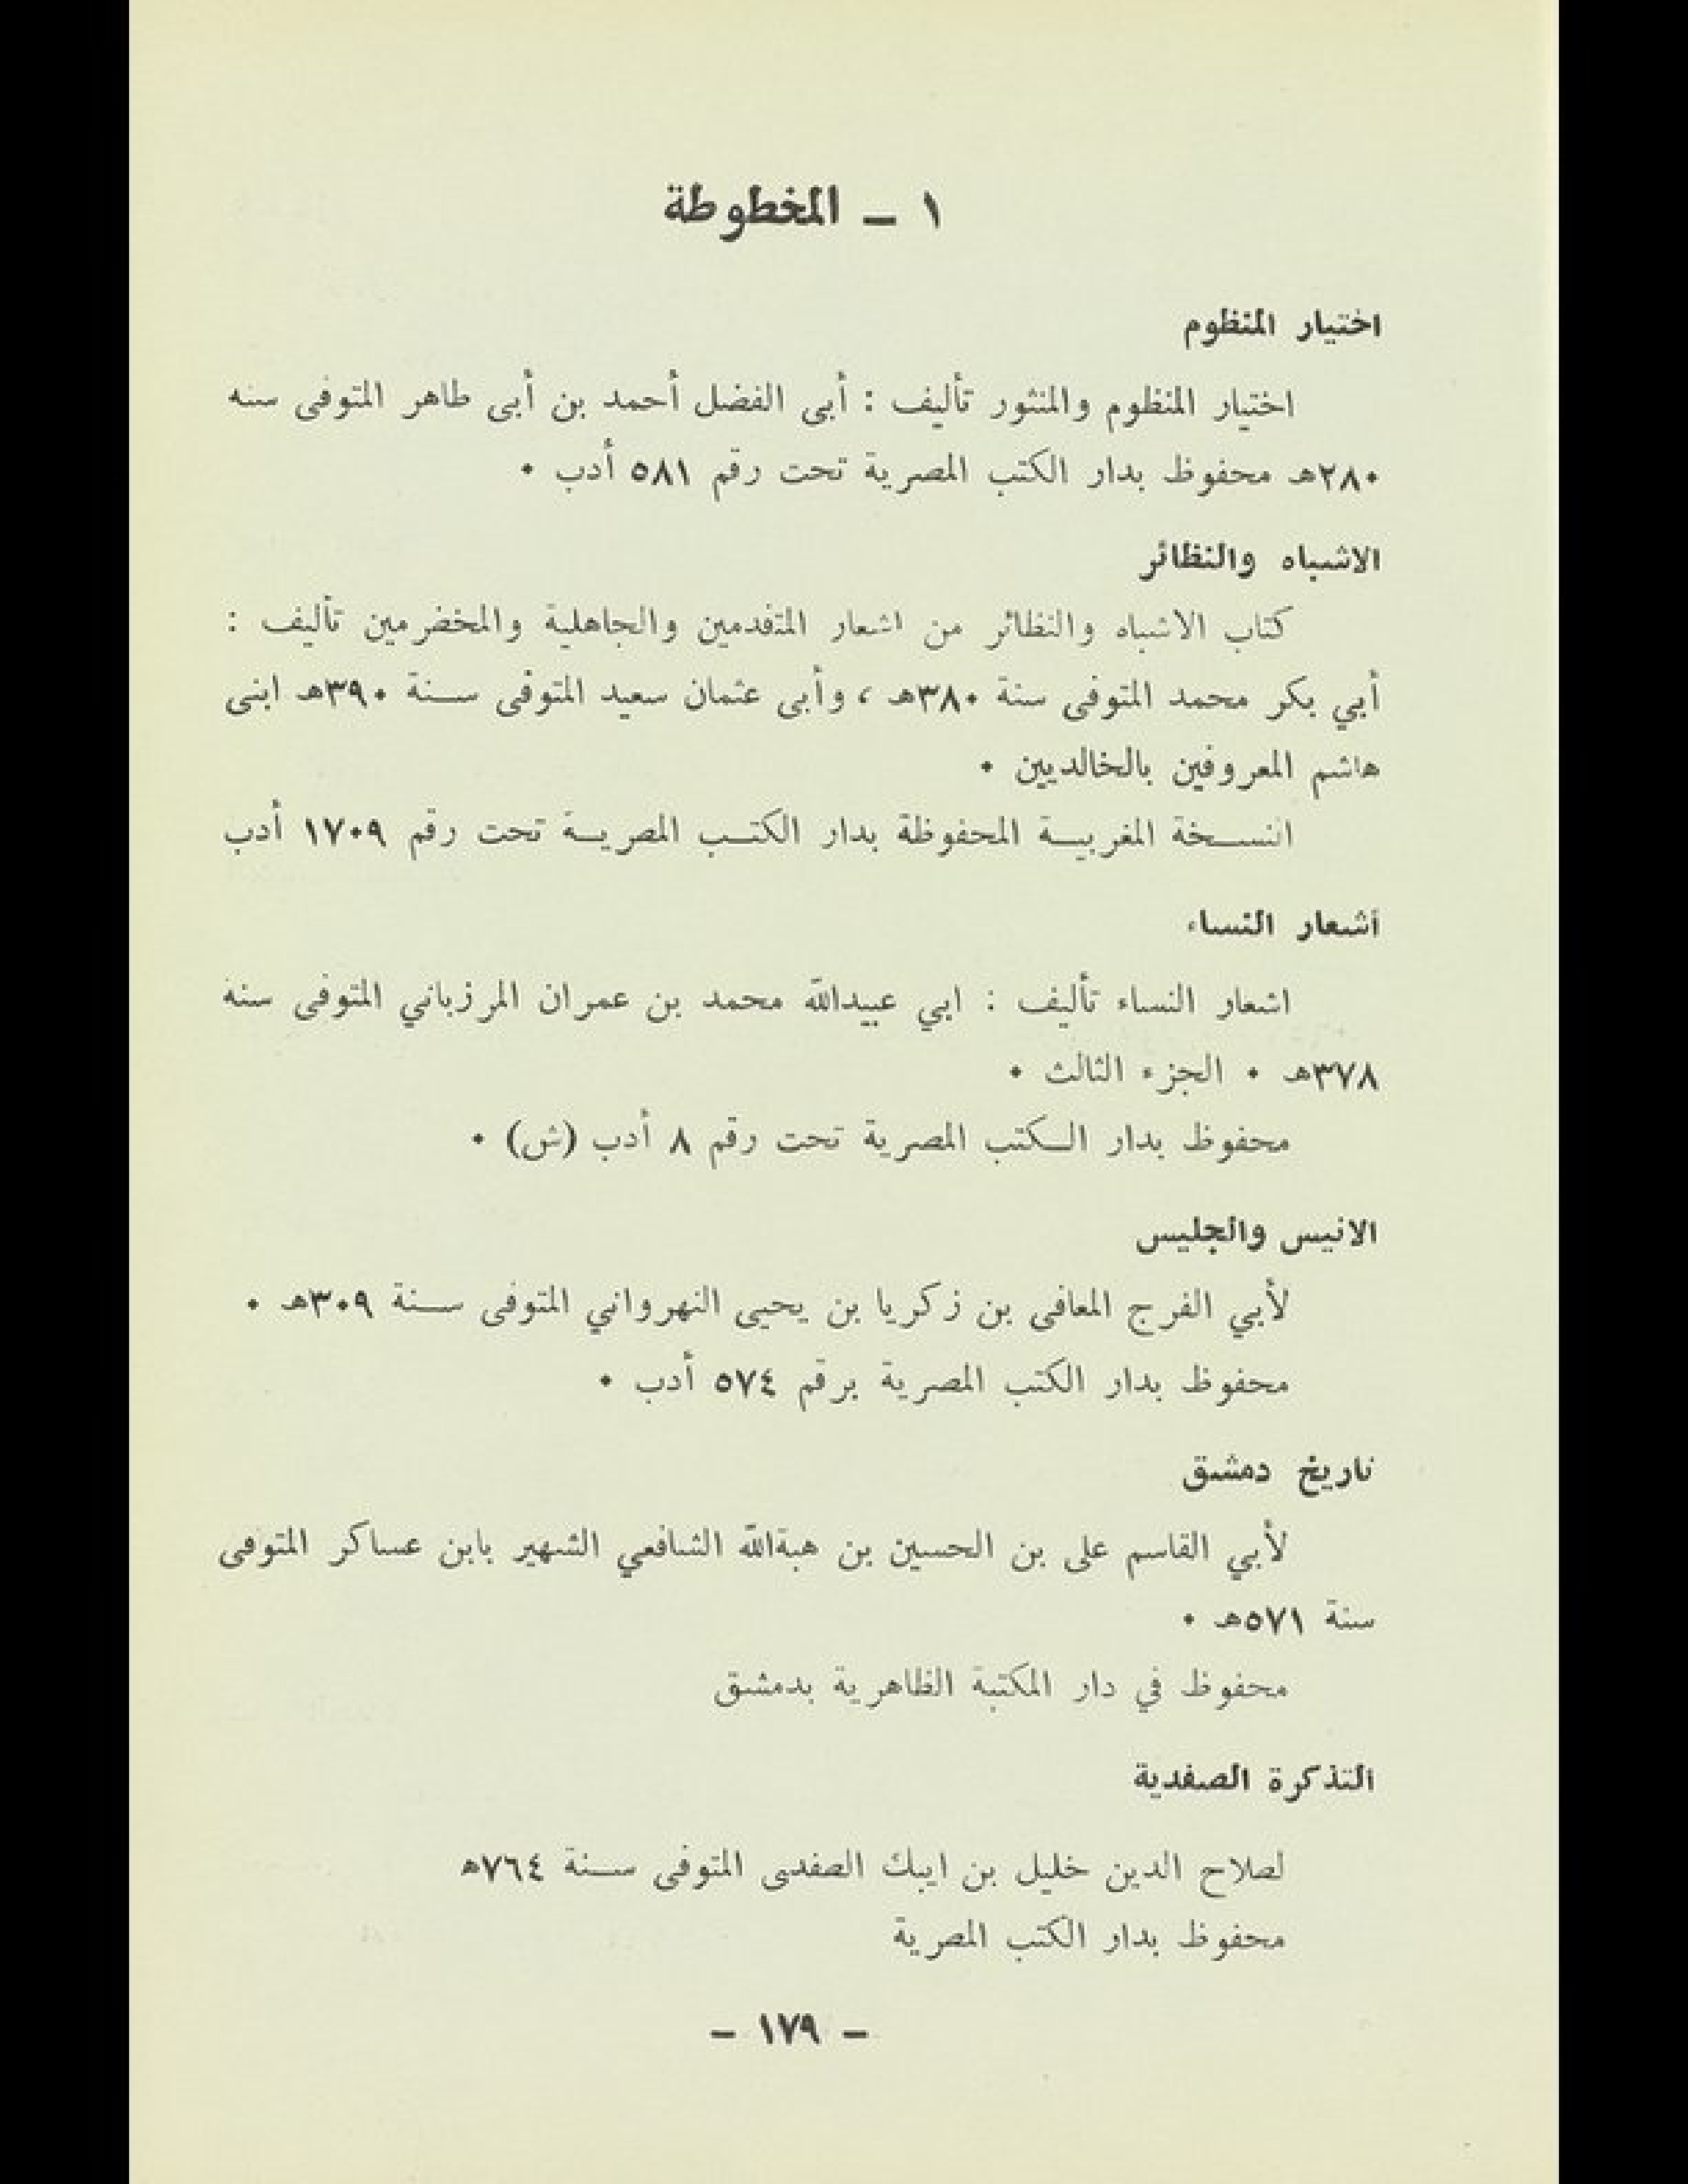 ١ ـ المخطوطة
اختيار المنظوم
اختيار المنظوم والمنثور تأليف : أبى الفضل أحمد بن أبى طاهر المتوفى سنه
٢٨٠هـ محفوظ بدار الكتب المصرية تحت رقم ٥٨١ أدب ٠
الاشباه والنظائر
كتاب الاشباه والنظائر من اشعار المتقدمين والجاهلية والمخضرمين تأليف :
أبي بكر محمد المتوفى سنة ٣٨٠هـ ، وأبى عثمان سعيد المتوفى سـنة ٣٩٠هـ ابنى
هاشم المعروفين بالخالديين ٠
النسـخة المغربيـة المحفوظة بدار الكتـب المصريـة تحت رقم ١٧٠٩ أدب
أشعار النساء
اشعار النساء تأليف : ابي عبيدالله محمد بن عمران المرزباني المتوفى سنة
٣٧٨هـ ٠ الجزء الثالث ٠
محفوظ بدار الـكتب المصرية تحت رقم ٨ أدب (ش) ٠
الانيس والجليس
لأبي الفرج المعافى بن زكريا بن يحيى النهرواني المتوفى سـنة ٣٠٩هـ ٠
محفوظ بدار الكتب المصرية برقم ٥٧٤ أدب ٠
تاريخ دمشق
لأبي القاسم على بن الحسين بن هبةالله الشافعي الشهير بابن عساكر المتوفى
سنة ٥٧١هـ ٠
محفوظ في دار المكتبة الظاهرية بدمشق
التذكرة الصفدية
لصلاح الدين خليل بن ايبك الصفدى المتوفى سـنة ٧٦٤ه
محفوظ بدار الكتب المصرية
– ١٧٩ –